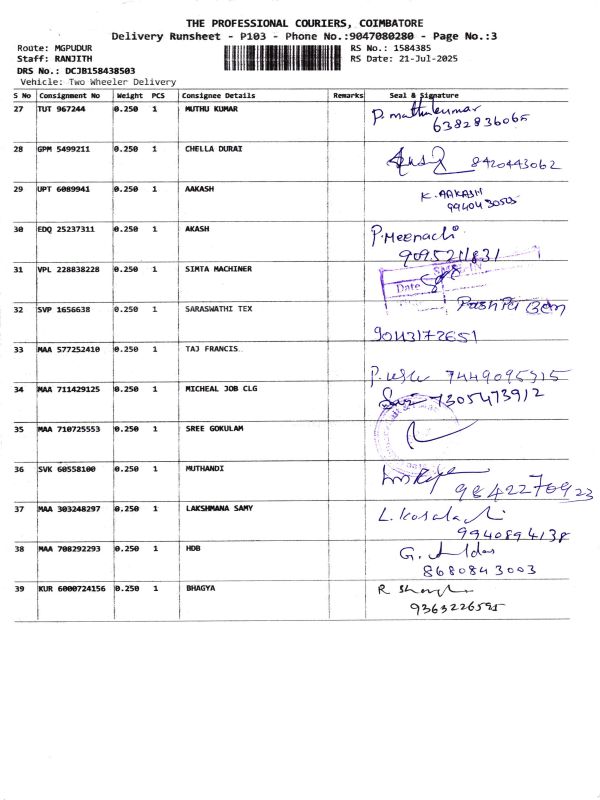 THE PROFESSIONAL COURIERS, COIMBATORE
Delivery Runsheet - P103 - Phone No.:9047080280 - Page No.:3
Route: MGPUDUR
RS No.: 1584385
Staff: RANJITH
RS Date: 21-Jul-2025
DRS No.: DCJB158438503
Vehicle: Two Wheeler Delivery
S No Consignment No Weight PCS Consignee Details Remarks Seal & Signature
27 TUT 967244 0.250 1 MUTHU KUMAR P. muthukumar
6382836065
28 GPM 5499211 0.250 1 CHELLA DURAI 8420443062
29 UPT 6089941 0.250 1 AAKASH K. AAKASH
30 EDQ 25237311 0.250 1 AKASH P. Meenachi
9095211831
31 VPL 228838228 0.250 1 SIMTA MACHINER
Date
32 SVP 1656638 0.250 1 SARASWATHI TEX
9043172651
33 MAA 577252410 0.250 1 TAJ FRANCIS
7449095915
34 MAA 711429125 0.250 1 MICHEAL JOB CLG 7305473912
35 MAA 710725553 0.250 1 SREE GOKULAM
36 SVK 60558100 0.250 1 MUTHANDI
9842270923
37 MAA 303248297 0.250 1 LAKSHMANA SAMY
9940894138
38 MAA 708292293 0.250 1 HDB G.
8680843003
39 KUR 6000724156 0.250 1 BHAGYA R
9363226595